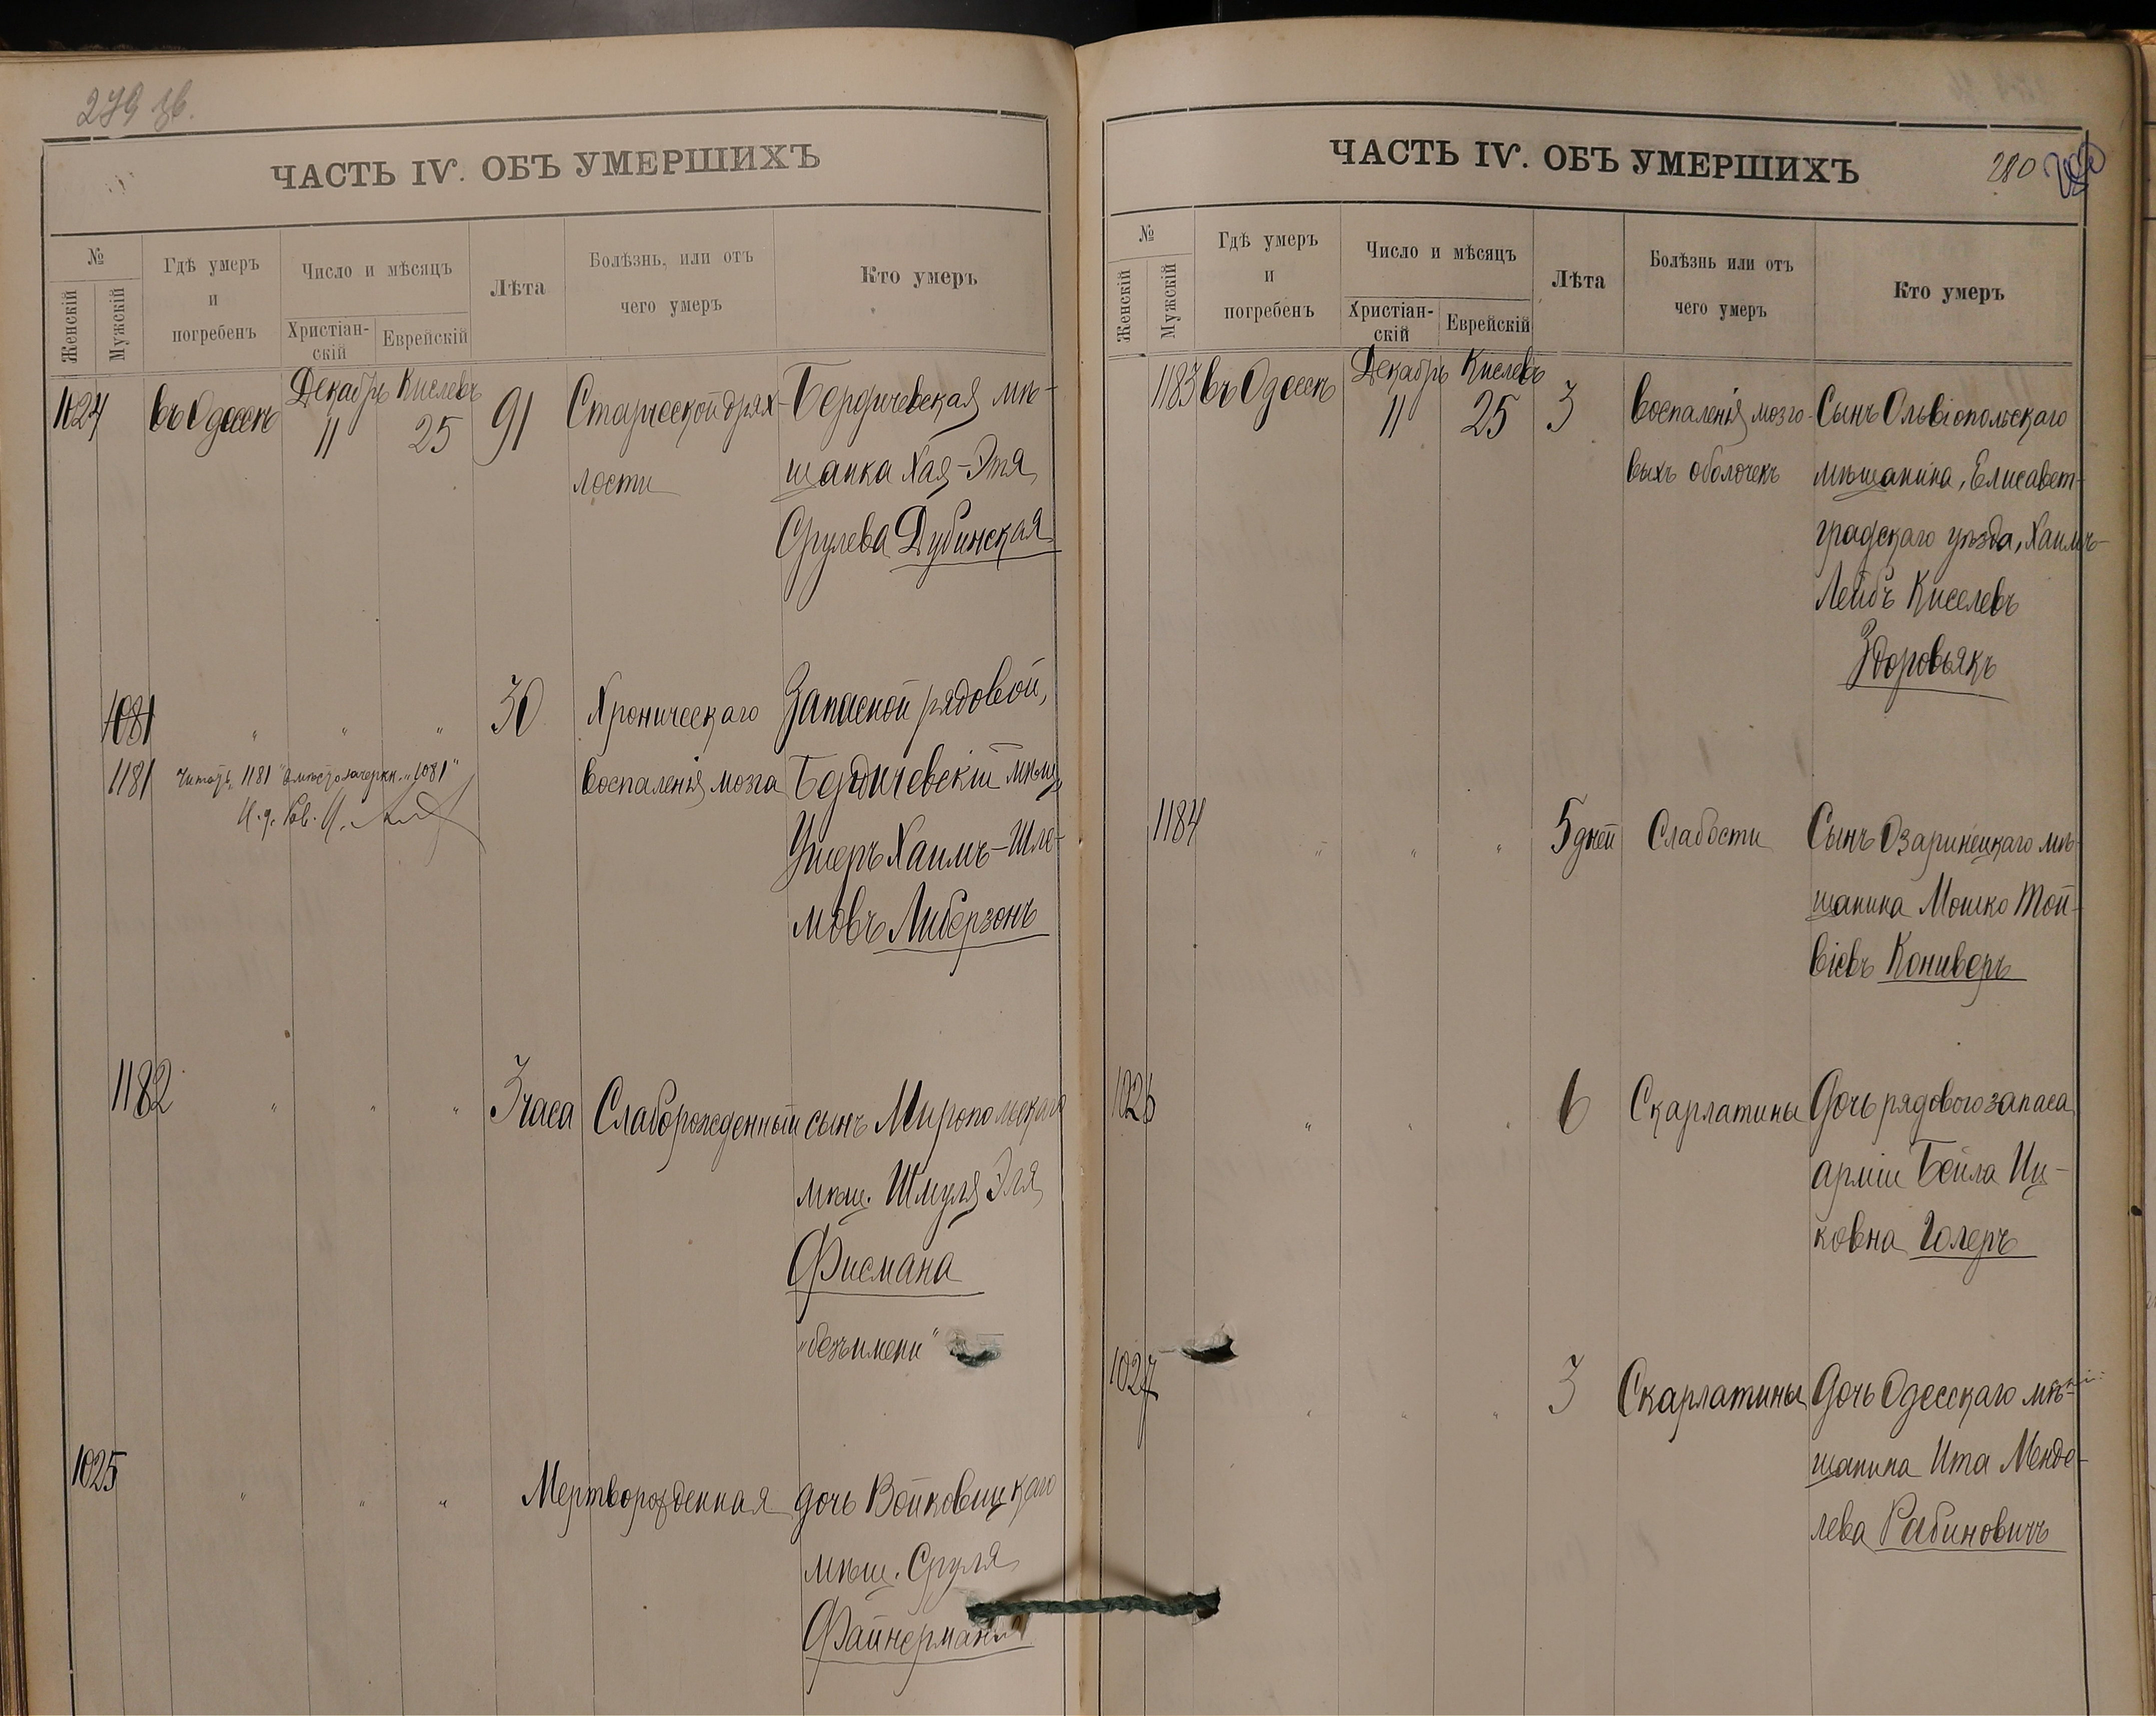 279 зв.
ЧАСТЬ IV. ОБЪ УМЕРШИХЪ
№
Женскій
Мужскій
Гдѣ умеръ
и
погребенъ
Число и мѣсяцъ
Христіан-
скій
Еврейскій
Лѣта
Болѣзнь, или отъ
чего умеръ
Кто умеръ
1024 въ Одессѣ Декабрь 11 Кислевъ 25 91 Старческой дрях- Бердичевская мѣ-
лости щанка Хая-Этя
Срулева Дубинская
1081 " " " 30 Хроническаго Запасной рядовой,
1181 Читать "1181" вмѣсто зачеркн. "1081" воспаленія мозга Бердичевскій мѣщ.
И. д. Рав.
Ушеръ Хаимъ-Шле-
мовъ Либерзонъ
1182 " " " 3 часа Слаборожденный сынъ Миропольскаго
мѣщ. Шмуля Эля
Фисмана
"безъ имени"
1025 " " " Мертворожденная дочь Войковицкаго
мѣщ. Сруля
Файнермана
ЧАСТЬ IV. ОБЪ УМЕРШИХЪ 280
№
Женскій
Мужскій
Гдѣ умеръ
и
погребенъ
Число и мѣсяцъ
Христіан-
скій
Еврейскій
Лѣта
Болѣзнь или отъ
чего умеръ
Кто умеръ
1183 въ Одессѣ Декабрь 11 Кислевъ 25 3 Воспаленія мозго- Сынъ Ольвіопольскаго
выхъ оболочекъ мѣщанина, Елисавет-
градскаго уѣзда, Хаимъ-
Лейбъ Киселевъ
Здоровьякъ
1184 " " " 5 дней Слабости Сынъ Озаринецкаго мѣ-
щанина Мошко Той-
віевъ Кониверъ
1026 " " " 6 Скарлатины Дочь рядового запаса
арміи Бейла Иц-
ковна Голеръ
1027 " " " 3 Скарлатины Дочь Одесскаго мѣ-
щанина Ита Менде-
лева Рабиновичъ